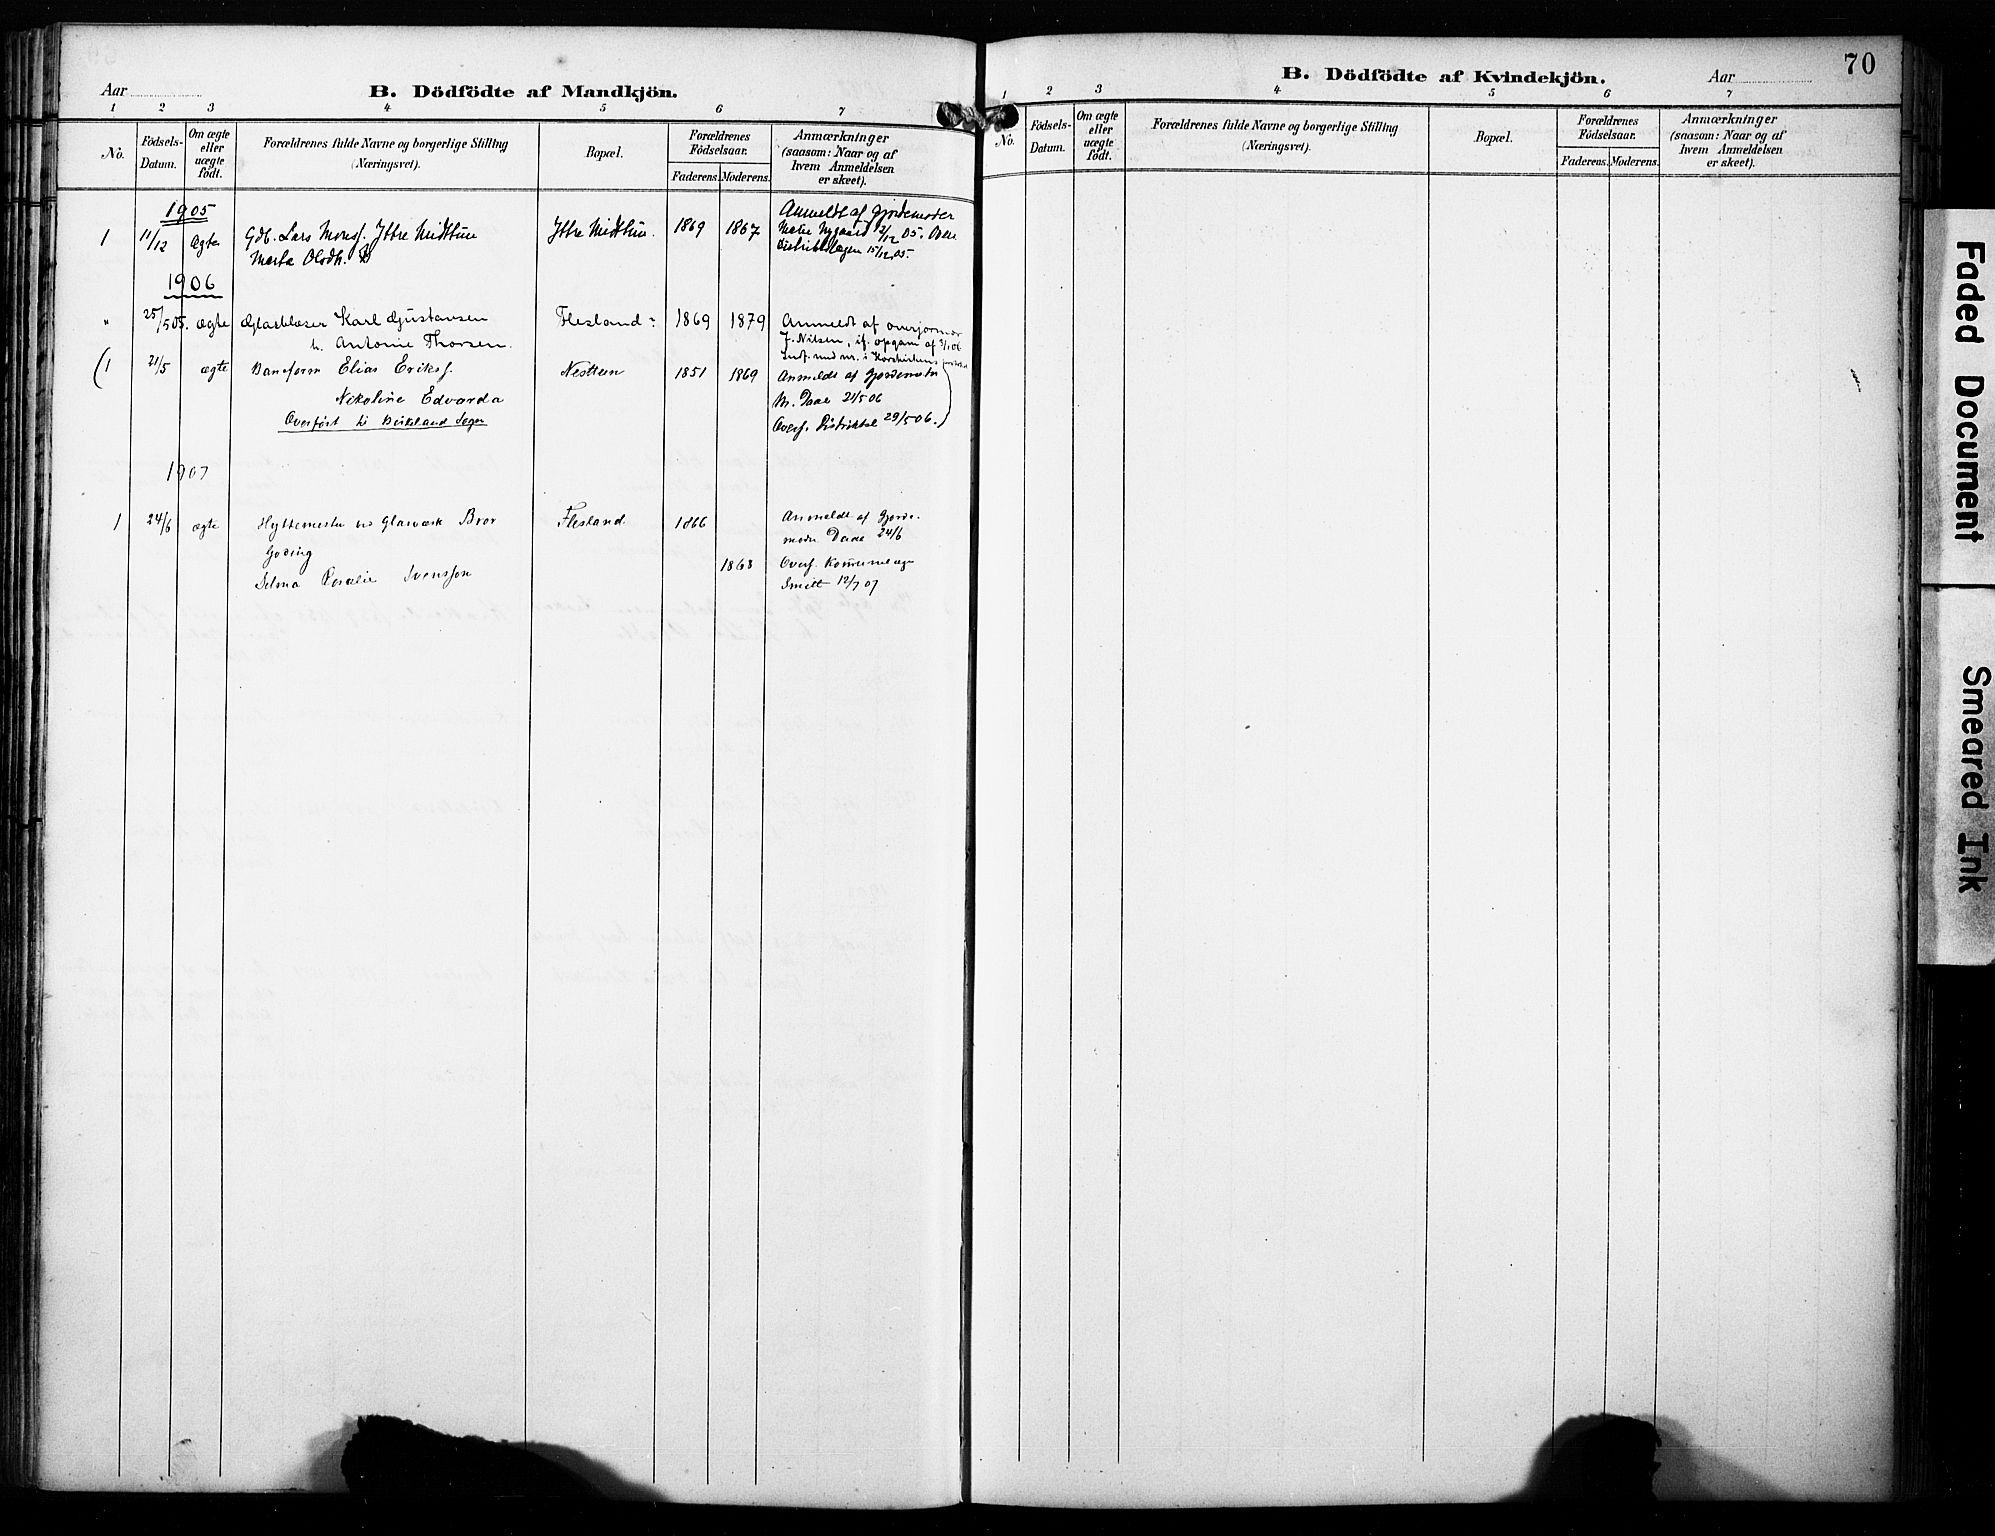 Aar
B. Dödfödte af Mandkjön.
1 2 3 4 5 6 7
No.
Födsels-
Datum.
Om ægte
eller
uægte
födt.
Forældrenes fulde Navne og borgerlige Stilling
(Næringsvei).
Bopæl.
Forældrenes
Födselsaar.
Faderens. Moderens.
Anmærkninger
(saasom: Naar og af
hvem Anmeldelsen
er skeet).
1905
1 11/12 Ægte Gdb. Lars Monsf. Ytre Midttun Ytre Midttun. 1869 1867 Anmeldt af Gjordemoder
Nygaard 2/12 05.
Marta Olsdtr. Distriktslægen 15/12 05.
1906
" 25/5 05. ægte Glasblæser Karl Gustavsen Flesland 1869 1879 Anmeldt af
h. Antonie Thorsen. J. Nilsen, if. opgave af 3/1 06
(1 21/5 ægte Baneform Elias Eriksf. Nesttun 1851 1869 Anmeldt af Gjordemoder
Nikoline Edvarda M. Daae 21/5 06
Overført til Birkeland Sogn Overf. Distriktsl 29/5 06.)
1907
1 24/6 ægte Hyttemester ved Glasværk Bror Flesland 1866 Anmeldt af Gjorde-
moder Daae 24/6
Goding
1868 Overf. Kommunelæge
Selma Rosalie Svensson Smitt 12/7 07
70
B. Dödfödte af Kvindekjön.
Aar
1 2 3 4 5 6 7
No.
Födsels-
Datum.
Om ægte
eller
uægte
födt.
Forældrenes fulde Navne og borgerlige Stilling
(Næringsvei).
Bopæl.
Forældrenes
Födselsaar.
Faderens. Moderens.
Anmærkninger
(saasom: Naar og af
hvem Anmeldelsen
er skeet).
Faded Document
Smeared Ink